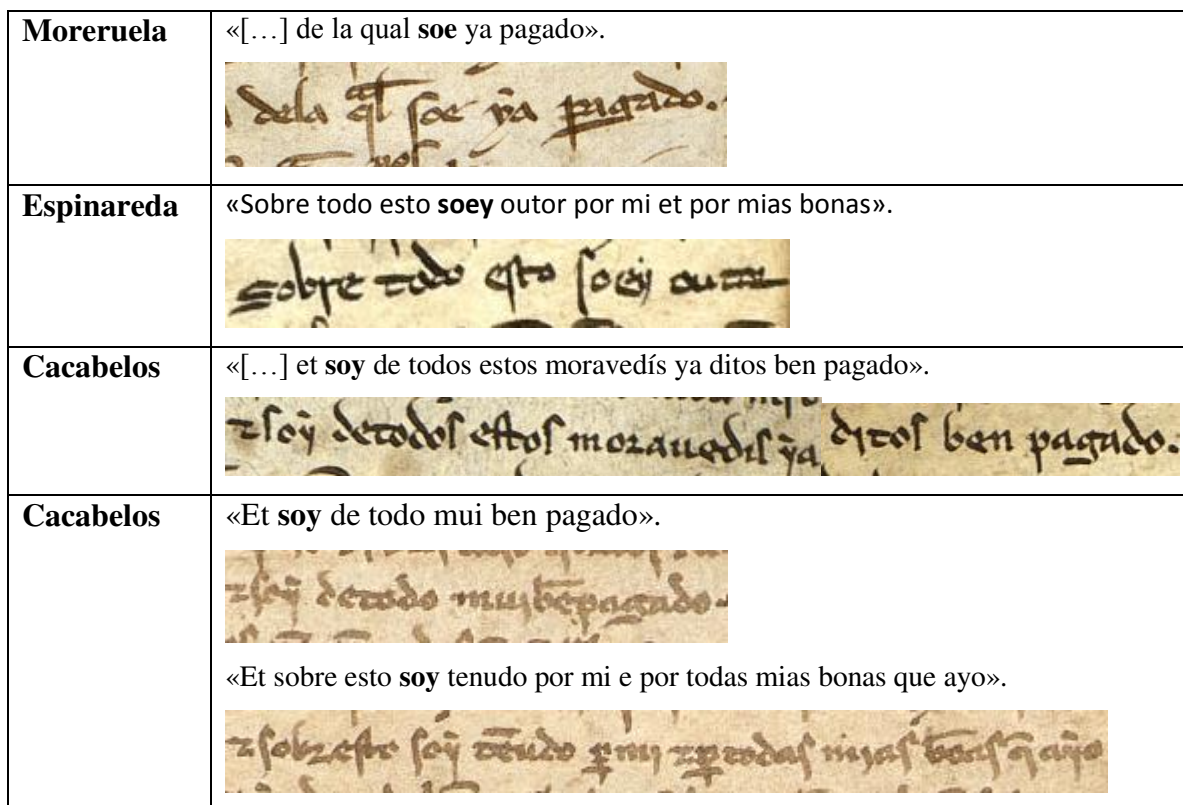 Moreruela
«[…] de la qual soe ya pagado».
dela ql soe ya pagado.
Espinareda
«Sobre todo esto soey outor por mi et por mias bonas».
sobre todo esto soey outor
Cacabelos
«[…] et soy de todos estos moravedís ya ditos ben pagado».
⁊ soy de todos estos morauedis ya ditos ben pagado.
Cacabelos
«Et soy de todo mui ben pagado».
⁊ soy de todo muy bẽ pagado.
«Et sobre esto soy tenudo por mi e por todas mias bonas que ayo».
⁊ sobresto soy tẽudo ꝑ mi ⁊ ꝑ todas mias bõas q̃ ayo